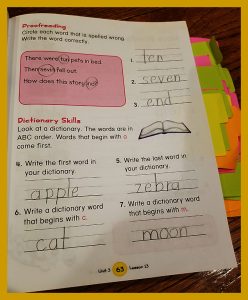 Proofreading
Circle each word that is spelled wrong.
Write the word correctly.
There were pets in bed.
Then fell out.
How does this story
1. ten
2. seven
3. end
Dictionary Skills
Look at a dictionary. The words are in
ABC order. Words that begin with a
come first.
4. Write the first word in
your dictionary.
apple
5. Write the last word in
your dictionary.
zebra
6. Write a dictionary word
that begins with c.
cat
7. Write a dictionary word
that begins with m.
moon
Unit 3 63 Lesson 13